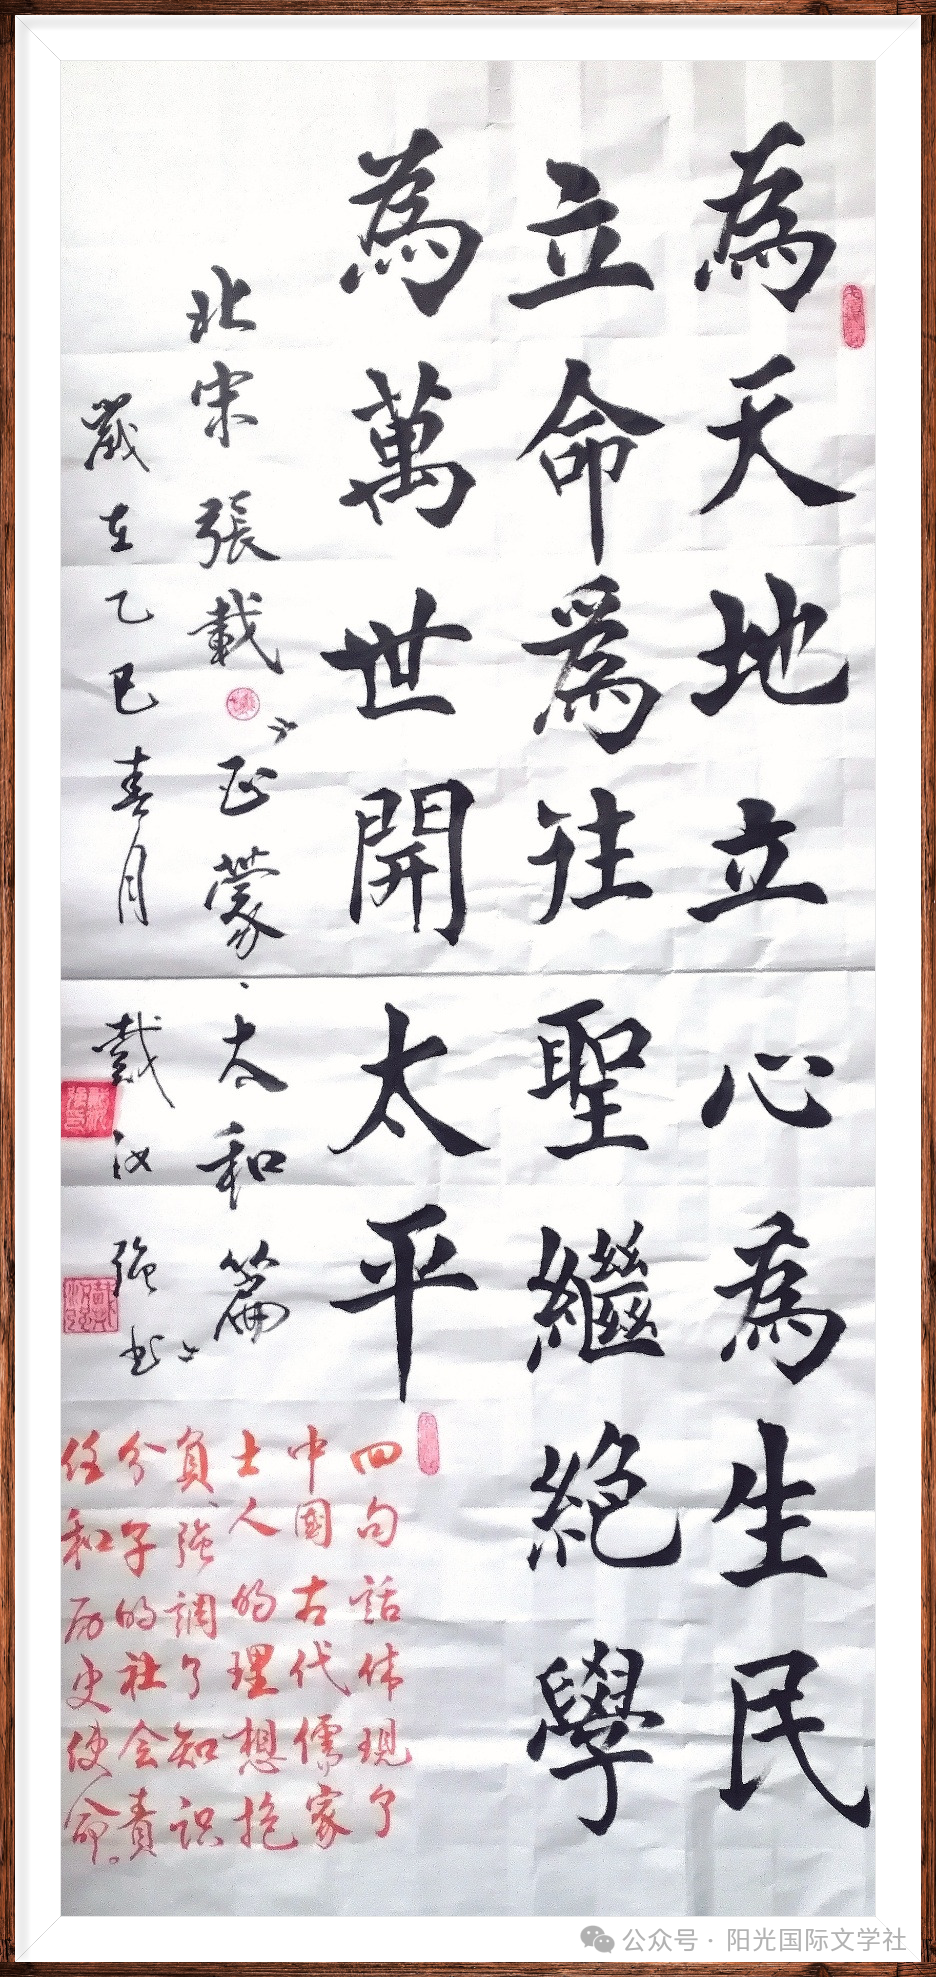 為天地立心為生民
立命爲往聖繼絕學
為萬世開太平
北宋張載《正蒙·太和篇》
歲在乙巳春月戴汉強书
四句話体現了
中国古代儒家
士人的理想抱
負、強調了知识
分子的社会責
任和历史使命。
公众号·阳光国际文学社